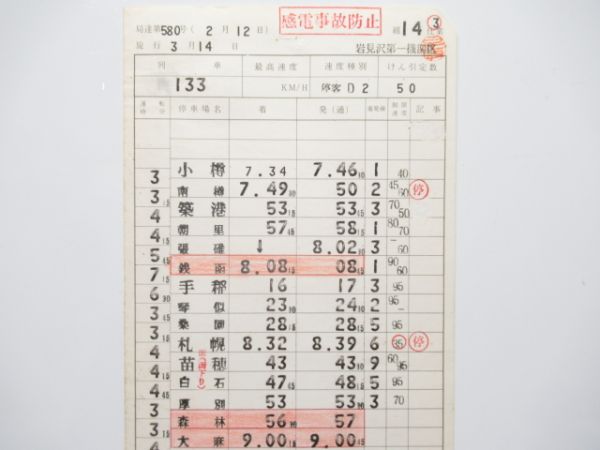 局達第580号(2月12日) 感電事故防止 14 3
施行 3月14日 岩見沢第一機関区
列車 最高速度 速度種別 けん引定数
133 KM/H 停客D2 50
運転時分 停車場名 着 発(通) 着発線 制限速度 記事
小樽 7.34 7.46 10 1 40
3 南樽 7.49 00 50 2 45 60 停
3 15 築港 53 15 53 45 3 70 50
3 朝里 57 45 58 15 1 80 70
4 張碓 ↓ 8.02 30 3 - 60
5 45 銭函 8.08 15 08 45 1 90 60
7 手郡 16 17 3 95
6 30 琴似 23 30 24 10 2 95
3 桑園 28 15 28 45 5 95
4 札幌 8.32 8.39 6 35 停
4 苗穂 43 43 30 9 60 95
4 15 白石 47 45 48 15 5 95
4 45 厚別 53 53 30 3 70
3 森林 56 30 57
3 15 大麻 9.00 15 9.00 45